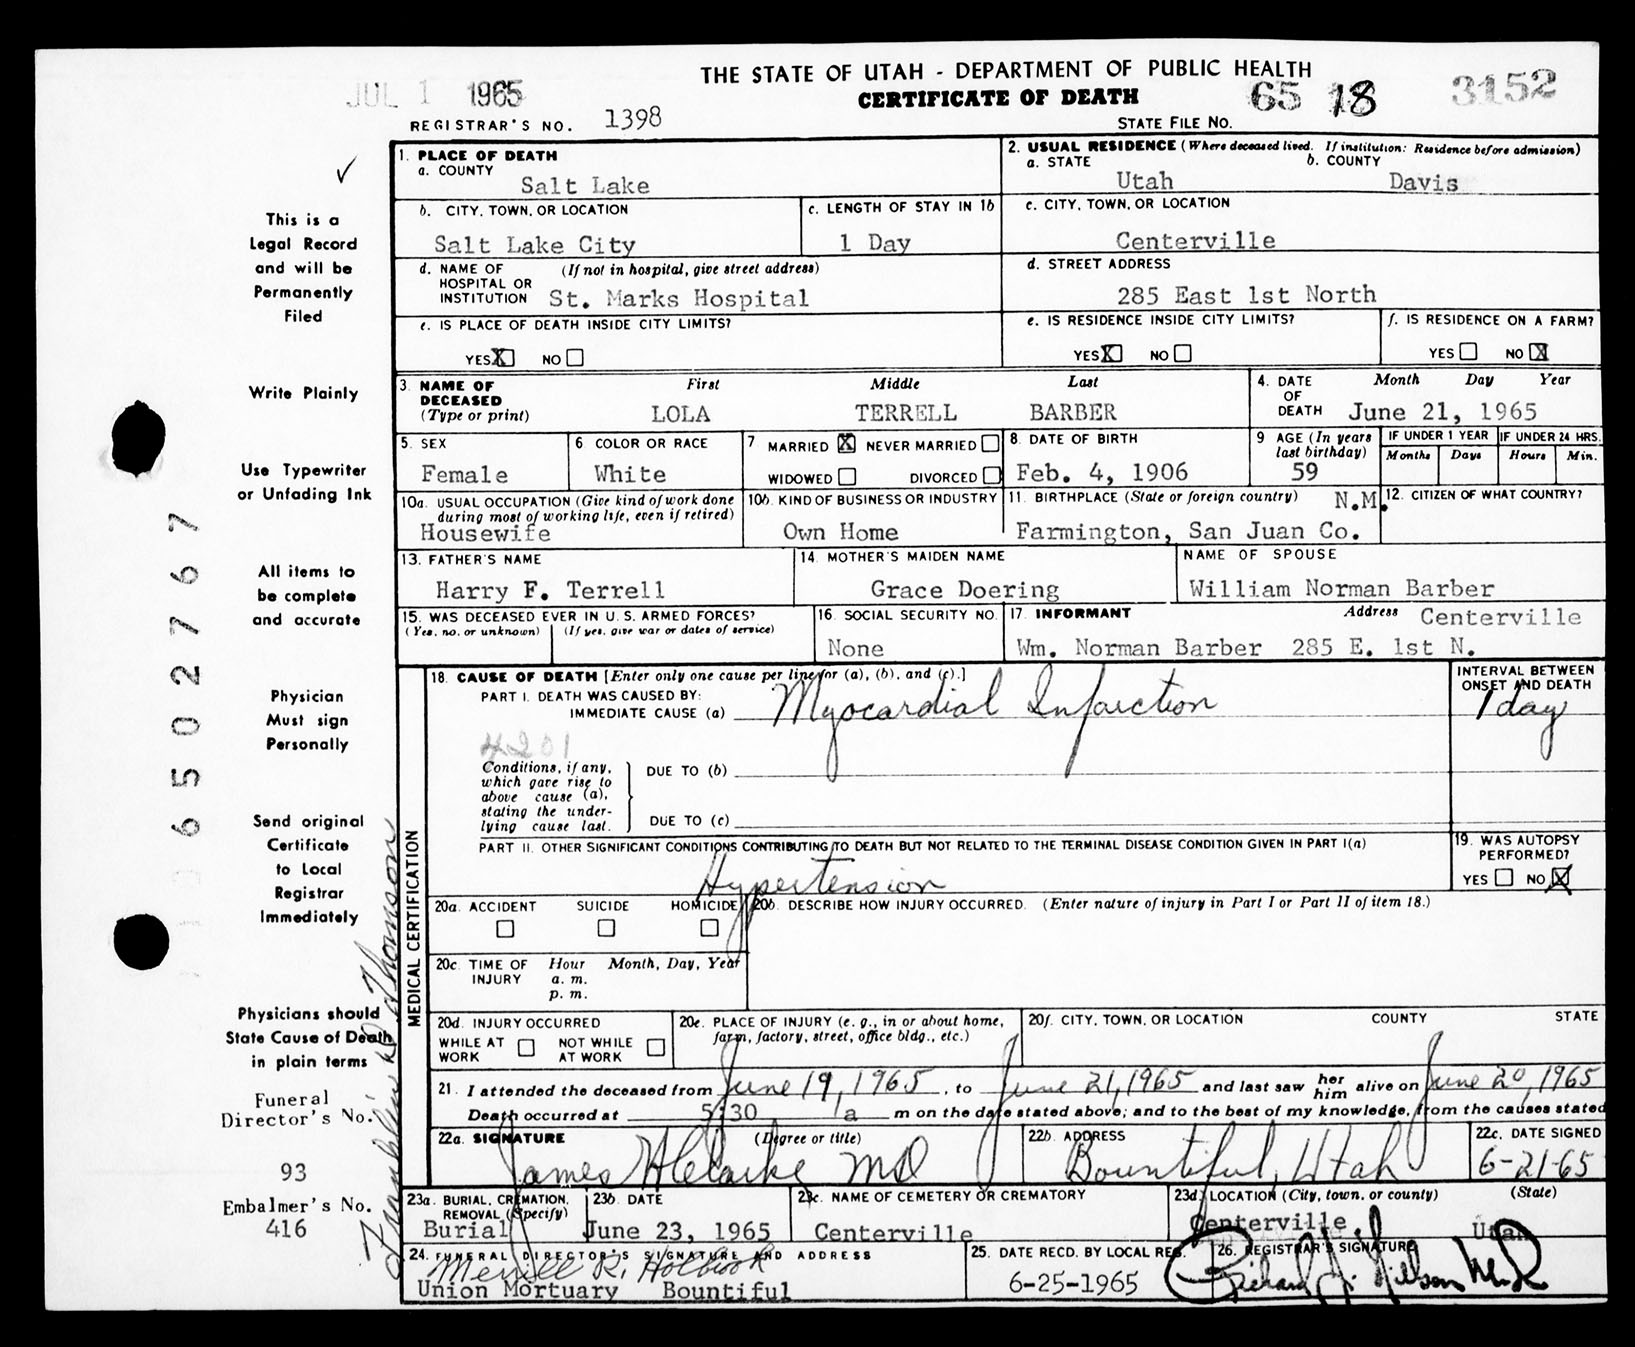 THE STATE OF UTAH - DEPARTMENT OF PUBLIC HEALTH
CERTIFICATE OF DEATH
JUL 1 1965
65 18 3152
REGISTRAR'S NO. 1398
STATE FILE NO.
This is a
Legal Record
and will be
Permanently
Filed
Write Plainly
Use Typewriter
or Unfading Ink
All items to
be complete
and accurate
Physician
Must sign
Personally
Send original
Certificate
to Local
Registrar
Immediately
Physicians should
State Cause of Death
in plain terms
Funeral
Director's No.
93
Embalmer's No.
416
6502767
1. PLACE OF DEATH
a. COUNTY
Salt Lake
2. USUAL RESIDENCE (Where deceased lived. If institution: Residence before admission)
a. STATE b. COUNTY
Utah Davis
b. CITY, TOWN, OR LOCATION
Salt Lake City
c. LENGTH OF STAY IN 1b
1 Day
c. CITY, TOWN, OR LOCATION
Centerville
d. NAME OF (If not in hospital, give street address)
HOSPITAL OR
INSTITUTION St. Marks Hospital
d. STREET ADDRESS
285 East 1st North
e. IS PLACE OF DEATH INSIDE CITY LIMITS?
YES X NO
e. IS RESIDENCE INSIDE CITY LIMITS?
YES X NO
f. IS RESIDENCE ON A FARM?
YES NO X
3. NAME OF First Middle Last
DECEASED
(Type or print) LOLA TERRELL BARBER
4. DATE Month Day Year
OF
DEATH June 21, 1965
5. SEX
Female
6 COLOR OR RACE
White
7 MARRIED X NEVER MARRIED
WIDOWED DIVORCED
8. DATE OF BIRTH
Feb. 4, 1906
9 AGE (In years
last birthday)
59
IF UNDER 1 YEAR IF UNDER 24 HRS.
Months Days Hours Min.
10a. USUAL OCCUPATION (Give kind of work done
during most of working life, even if retired)
Housewife
10b. KIND OF BUSINESS OR INDUSTRY
Own Home
11. BIRTHPLACE (State or foreign country) N.M.
Farmington, San Juan Co.
12. CITIZEN OF WHAT COUNTRY?
13. FATHER'S NAME
Harry F. Terrell
14. MOTHER'S MAIDEN NAME
Grace Doering
NAME OF SPOUSE
William Norman Barber
15. WAS DECEASED EVER IN U. S. ARMED FORCES?
(Yes, no, or unknown) (If yes, give war or dates of service)
16. SOCIAL SECURITY NO.
None
17. INFORMANT Address Centerville
Wm. Norman Barber 285 E. 1st N.
MEDICAL CERTIFICATION
18. CAUSE OF DEATH [Enter only one cause per line for (a), (b), and (c).]
PART I. DEATH WAS CAUSED BY:
IMMEDIATE CAUSE (a) Myocardial Infarction
INTERVAL BETWEEN
ONSET AND DEATH
1 day
4201
Conditions, if any,
which gave rise to
above cause (a),
stating the under-
lying cause last.
DUE TO (b)
DUE TO (c)
PART II. OTHER SIGNIFICANT CONDITIONS CONTRIBUTING TO DEATH BUT NOT RELATED TO THE TERMINAL DISEASE CONDITION GIVEN IN PART I(a)
Hypertension
19. WAS AUTOPSY
PERFORMED?
YES NO X
20a. ACCIDENT SUICIDE HOMICIDE
20b. DESCRIBE HOW INJURY OCCURRED. (Enter nature of injury in Part I or Part II of item 18.)
20c. TIME OF Hour Month, Day, Year
INJURY a. m.
p. m.
20d. INJURY OCCURRED
WHILE AT NOT WHILE
WORK AT WORK
20e. PLACE OF INJURY (e. g., in or about home,
farm, factory, street, office bldg., etc.)
20f. CITY, TOWN, OR LOCATION COUNTY STATE
21. I attended the deceased from June 19, 1965, to June 21, 1965 and last saw her him alive on June 20, 1965
Death occurred at 5:30 a m on the date stated above; and to the best of my knowledge, from the causes stated
22a. SIGNATURE (Degree or title)
James H Clarke MD
22b. ADDRESS
Bountiful, Utah
22c. DATE SIGNED
6-21-65
23a. BURIAL, CREMATION,
REMOVAL (Specify)
Burial
23b. DATE
June 23, 1965
23c. NAME OF CEMETERY OR CREMATORY
Centerville
23d LOCATION (City, town, or county) (State)
Centerville Utah
24. FUNERAL DIRECTOR'S SIGNATURE AND ADDRESS
Merrill R. Holbrook
Union Mortuary Bountiful
25. DATE RECD. BY LOCAL REG.
6-25-1965
26. REGISTRAR'S SIGNATURE
Franklin D Thomson